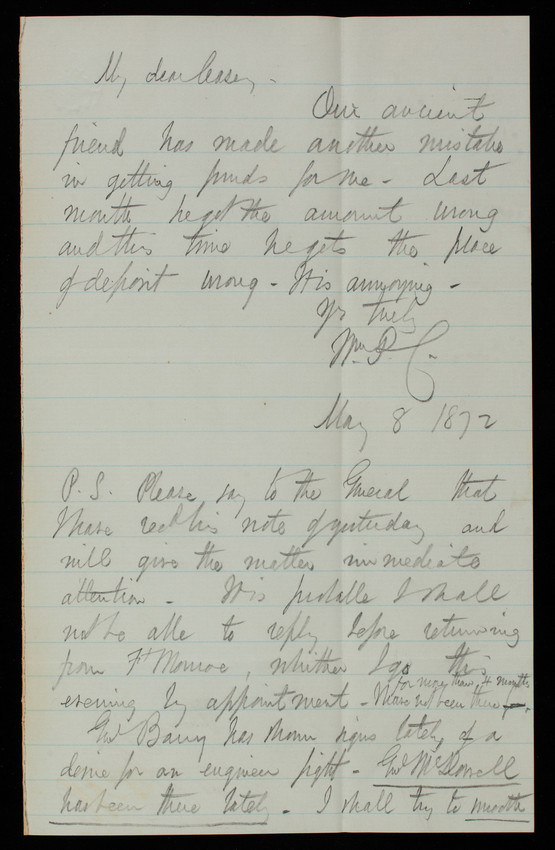 My dear Casey,
Our ancient
friend has made another mistake
in getting funds for me - Last
month he got the amount wrong
and this time he gets the place
of deposit wrong - It is annoying -
Yr truly
Wm P. C.
May 8 1872
P. S. Please say to the General that
I have recd his note of yesterday and
will give the matter immediate
attention - It is probable I shall
not be able to reply before returning
from Ft Monroe, whither I go this
for more than 4 months
evening by appointment - Have not been there
Genl Barry has shown signs lately of a
desire for an engineer fight - Genl McDowell
has been there lately - I shall try to smooth